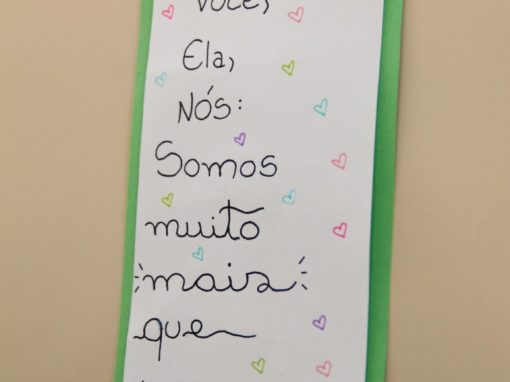 você,
Ela,
Nós:
Somos
muito
mais
que